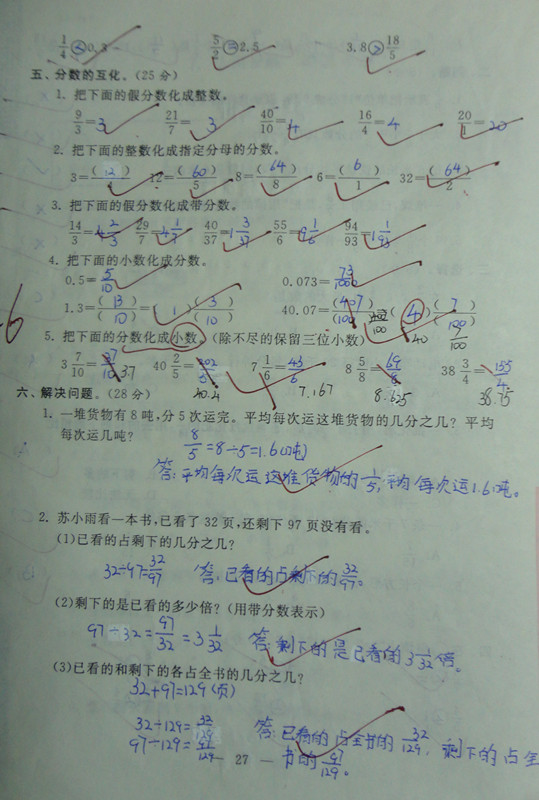 1/4 < 0.3 5/2 = 2.5 3.8 > 18/5
五、分数的互化。(25分)
1. 把下面的假分数化成整数。
9/3=3 21/7=3 40/10=4 16/4=4 20/1=20
2. 把下面的整数化成指定分母的分数。
3=(12)/ 12=(60)/5 8=(64)/8 6=(6)/1 32=(64)/2
3. 把下面的假分数化成带分数。
14/3=4 2/3 29/7=4 1/7 40/37=1 3/37 55/6=9 1/6 94/93=1 1/93
4. 把下面的小数化成分数。
0.5=5/10 0.073=73/1000
1.3=(13)/(10)=1(3)/(10) 40.07=(407)/(100) (4)(7)/(100)
40 9/100
5. 把下面的分数化成小数。(除不尽的保留三位小数)
3 7/10=37/10 40 2/5=202/5 7 1/6=43/6 8 5/8=69/8 38 3/4=155/4
37 40.4 7.167 8.625 38.75
六、解决问题。(28分)
1. 一堆货物有8吨,分5次运完。平均每次运这堆货物的几分之几? 平均
每次运几吨?
8/5=8÷5=1.6(吨)
答:平均每次运这堆货物的1/5,平均每次运1.6吨。
2. 苏小雨看一本书,已看了32页,还剩下97页没有看。
(1)已看的占剩下的几分之几?
32÷97=32/97 答:已看的占剩下的32/97。
(2)剩下的是已看的多少倍? (用带分数表示)
97÷32=97/32=3 1/32 答:剩下的是已看的3 1/32倍。
(3)已看的和剩下的各占全书的几分之几?
32+97=129(页)
32÷129=32/129 答:已看的占全书的32/129,剩下的占全
97÷129=97/129 书的97/129。
— 27 —